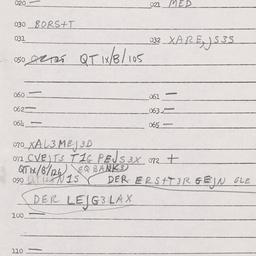 020 — 021 MED
030 BORS+T
031 032 XARE,JS3S
050 QT IX/B/105
060 — 061 —
062 — 063 —
064 — 065 —
070 XAL3MEJ3D
071 CVEJTS T1G PEJS3X 072 +
QT IX/B/126 EQBANK3
090 N1S DER ERS+T3R GEJN GLE
DER LEJG3LAX
100 —
110 —